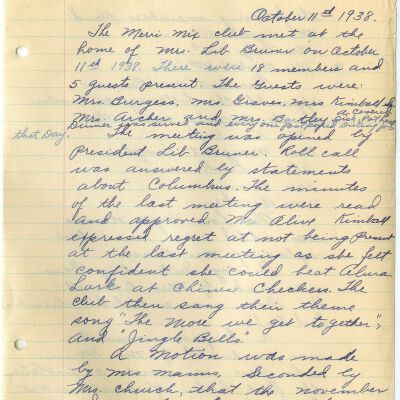 October 11th 1938.
The Merri Mix club met at the
home of Mrs. Lib Bruner on October
11th 1938. There were 18 members and
5 guests present. The Guests were:
Mrs. Burgess, Mrs. Graves, Miss Kimball,
Mrs. Archer, and Mrs. Bartley. A Covered
Dinner was served and every one
that Day. The meeting was opened by
President Lib Bruner. Roll call
was answered by statements
about Columbus. The minutes
of the last meeting were read
and approved. Mrs. Alive Kimball
expressed regret at not being present
at the last meeting as she felt
confident she could beat Alura
Lark at Chinese Checkers. The
club then sang their theme
song "The More we get together",
and "Jingle Bells."
A Motion was made
by mrs manns, Seconded by
Mrs. church, that the november